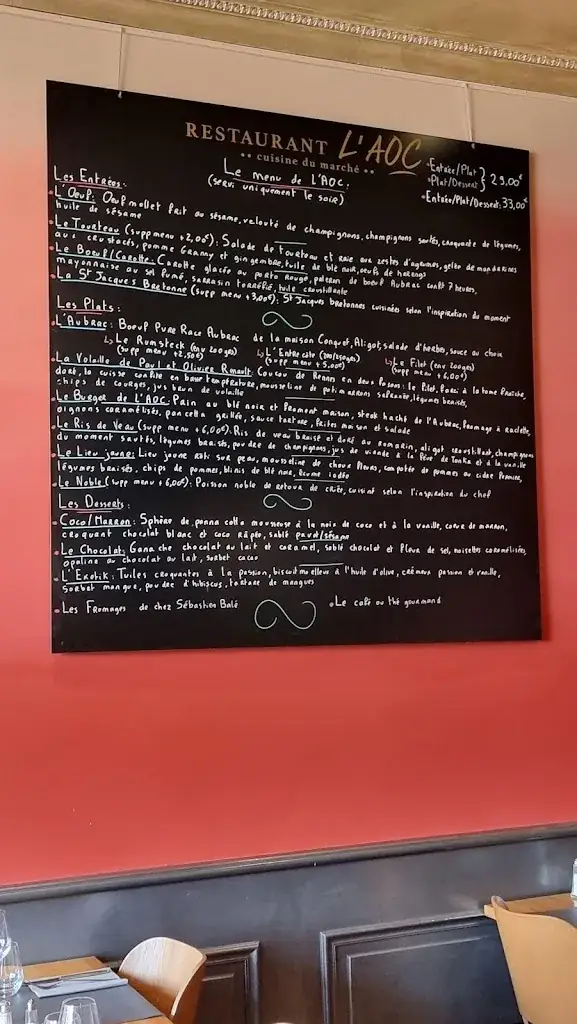 RESTAURANT L'AOC
•• cuisine du marché ••
Le menu de L'AOC.
(servi uniquement le soir)
•Entrée/Plat
•Plat/Dessert } 29,00€
•Entrée/Plat/Dessert: 33,00€
Les Entrées:
•L'Oeuf: Oeuf mollet frit au sésame, velouté de champignons, champignons sautés, croquante de légumes,
huile de sésame
•Le Tourteau (supp menu +2,00€): Salade de tourteau et raie aux zestes d'agrumes, gelée de mandarines
aux crustacés, pomme Granny et gingembre, tuile de blé noir, oeufs de harengs
•Le Boeuf/Carotte: Carotte glacée au porto rouge, paleron de boeuf Aubrac confit 7 heures,
mayonnaise au sel fumé, sarrasin torréfié, huile croustillante
•La St Jacques Bretonne (supp menu +3,00€): St Jacques bretonnes cuisinées selon l'inspiration du moment
Les Plats:
•L'Aubrac: Boeuf Pure Race Aubrac de la maison Conquet, Aligot, salade d'herbes, sauce au choix
↳ Le Rumsteck (env 200grs) (supp menu +2,50€)
↳ L'Entrecôte (supp menu +5,00€)
↳ Le Filet (env 200grs) (supp menu +6,00€)
•La Volaille de Paul et Olivier Renault: Coucou de Rennes en deux façons: le filet, farci à la tome fraîche,
doré, la cuisse confite en basse température, mousseline de potimarrons safranée, légumes braisés,
chips de courges, jus brun de volaille
•Le Burger de L'AOC: Pain au blé noir et froment maison, steak haché de l'Aubrac, fromage à raclette,
oignons caramélisés, pancetta grillée, sauce tartare, frites maison et salade
•Le Ris de Veau (supp menu +6,00€): Ris de veau braisé et doré au romarin, aligot croustillant, champignons
du moment sautés, légumes braisés, poudre de champignons, jus de viande à la fève de Tonka et à la vanille
•Le Lieu jaune: Lieu jaune rôti sur peau, mousseline de choux fleurs, compotée de pommes au cidre fermier,
légumes braisés, chips de pommes, blinis de blé noir, écume iodée
•Le Noble (supp menu +6,00€): Poisson noble de retour de criée, cuisiné selon l'inspiration du chef
Les Desserts:
•Coco/Marron: Sphère de panna cotta mousseuse à la noix de coco et à la vanille, coeur de marron,
croquant chocolat blanc et coco râpée, sablé pavot/sésame
•Le Chocolat: Ganache chocolat au lait et caramel, sablé chocolat et fleur de sel, noisettes caramélisées,
opaline au chocolat au lait, sorbet cacao
•L'Exotik: Tuiles croquantes à la passion, biscuit moelleux à l'huile d'olive, crémeux passion et vanille,
sorbet mangue, poudre d'hibiscus, tartare de mangues
•Les Fromages de chez Sébastien Balé
•Le café ou thé gourmand